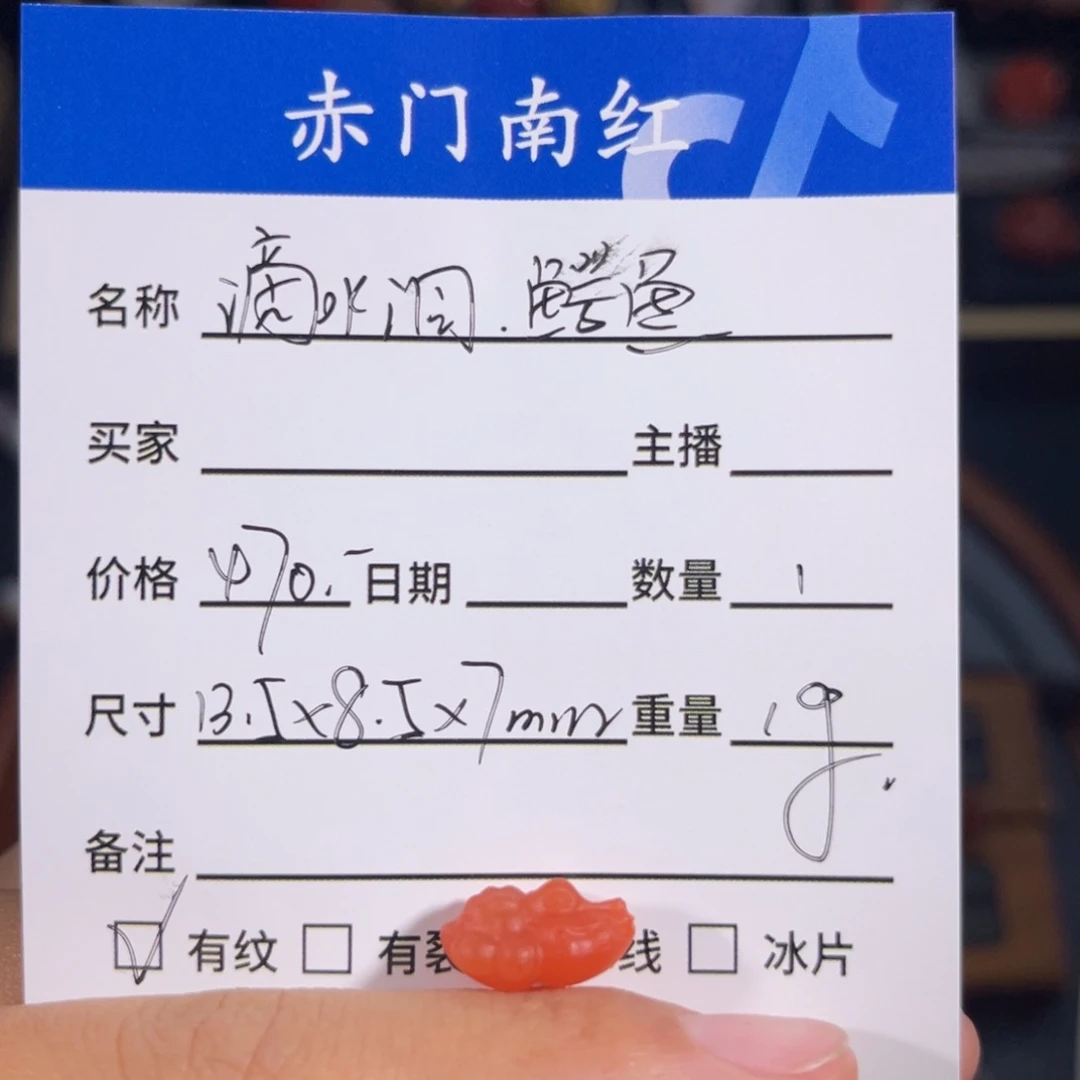 赤门南红
名称 滴水洞.鳄鱼
买家 主播
价格 470.- 日期 数量 1
尺寸 13.5×8.5×7mm 重量 1g.
备注
☑ 有纹 □ 有裂 线 □ 冰片